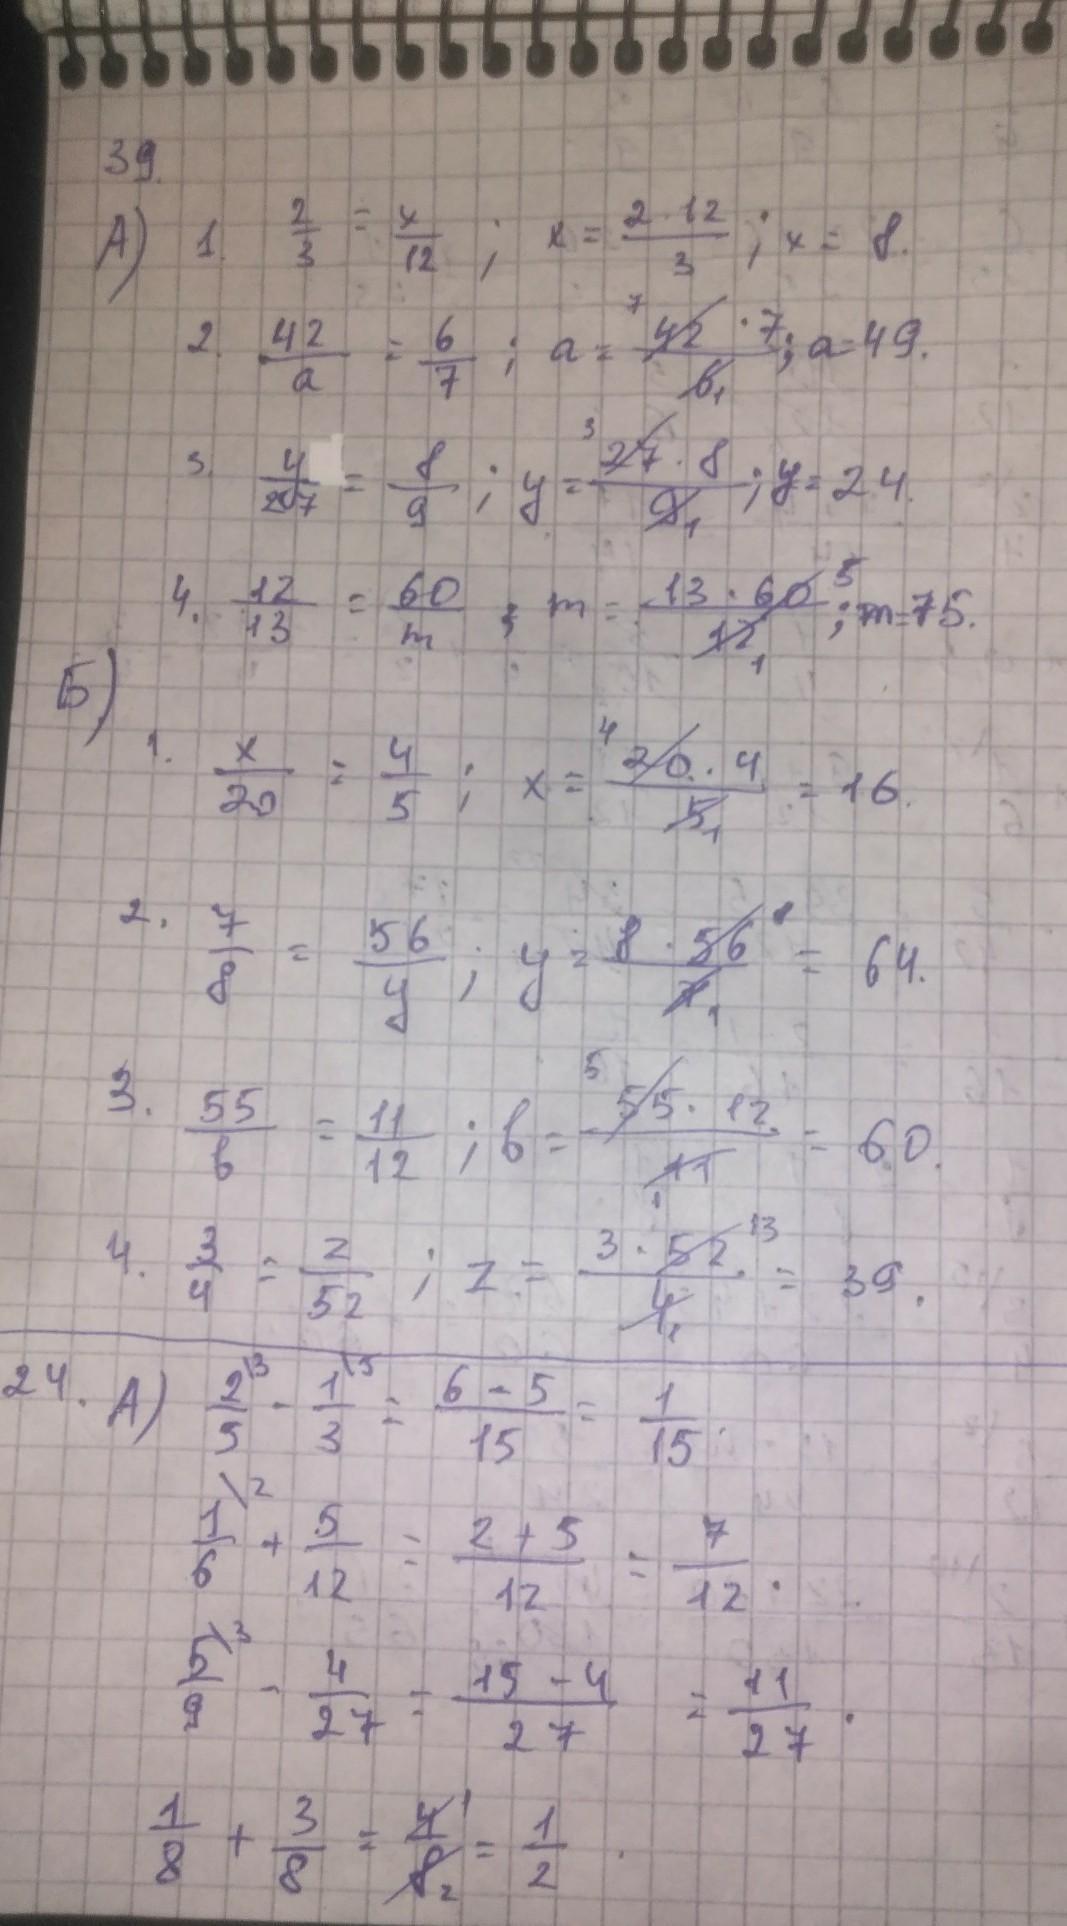 39.
А) 1. 2/3 = x/12 ; x = 2·12/3 ; x = 8.
2. 42/a = 6/7 ; a = 42·7/6 7 1 ; a=49.
3. y/27 = 8/9 ; y = 27·8/9 3 1 ; y=24.
4. 12/13 = 60/m ; m = 13·60/12 5 1 ; m=75.
Б)
1. x/20 = 4/5 ; x = 20·4/5 4 1 = 16.
2. 7/8 = 56/y ; y = 8·56/7 8 1 = 64.
3. 55/b = 11/12 ; b = 55·12/11 5 1 = 60.
4. 3/4 = z/52 ; z = 3·52/4 13 1 = 39.
24. А) 2/5 \3 - 1/3 \5 = 6-5/15 = 1/15.
1/6 \2 + 5/12 = 2+5/12 = 7/12.
5/9 \3 - 4/27 = 15-4/27 = 11/27.
1/8 + 3/8 = 4/8 1 2 = 1/2.